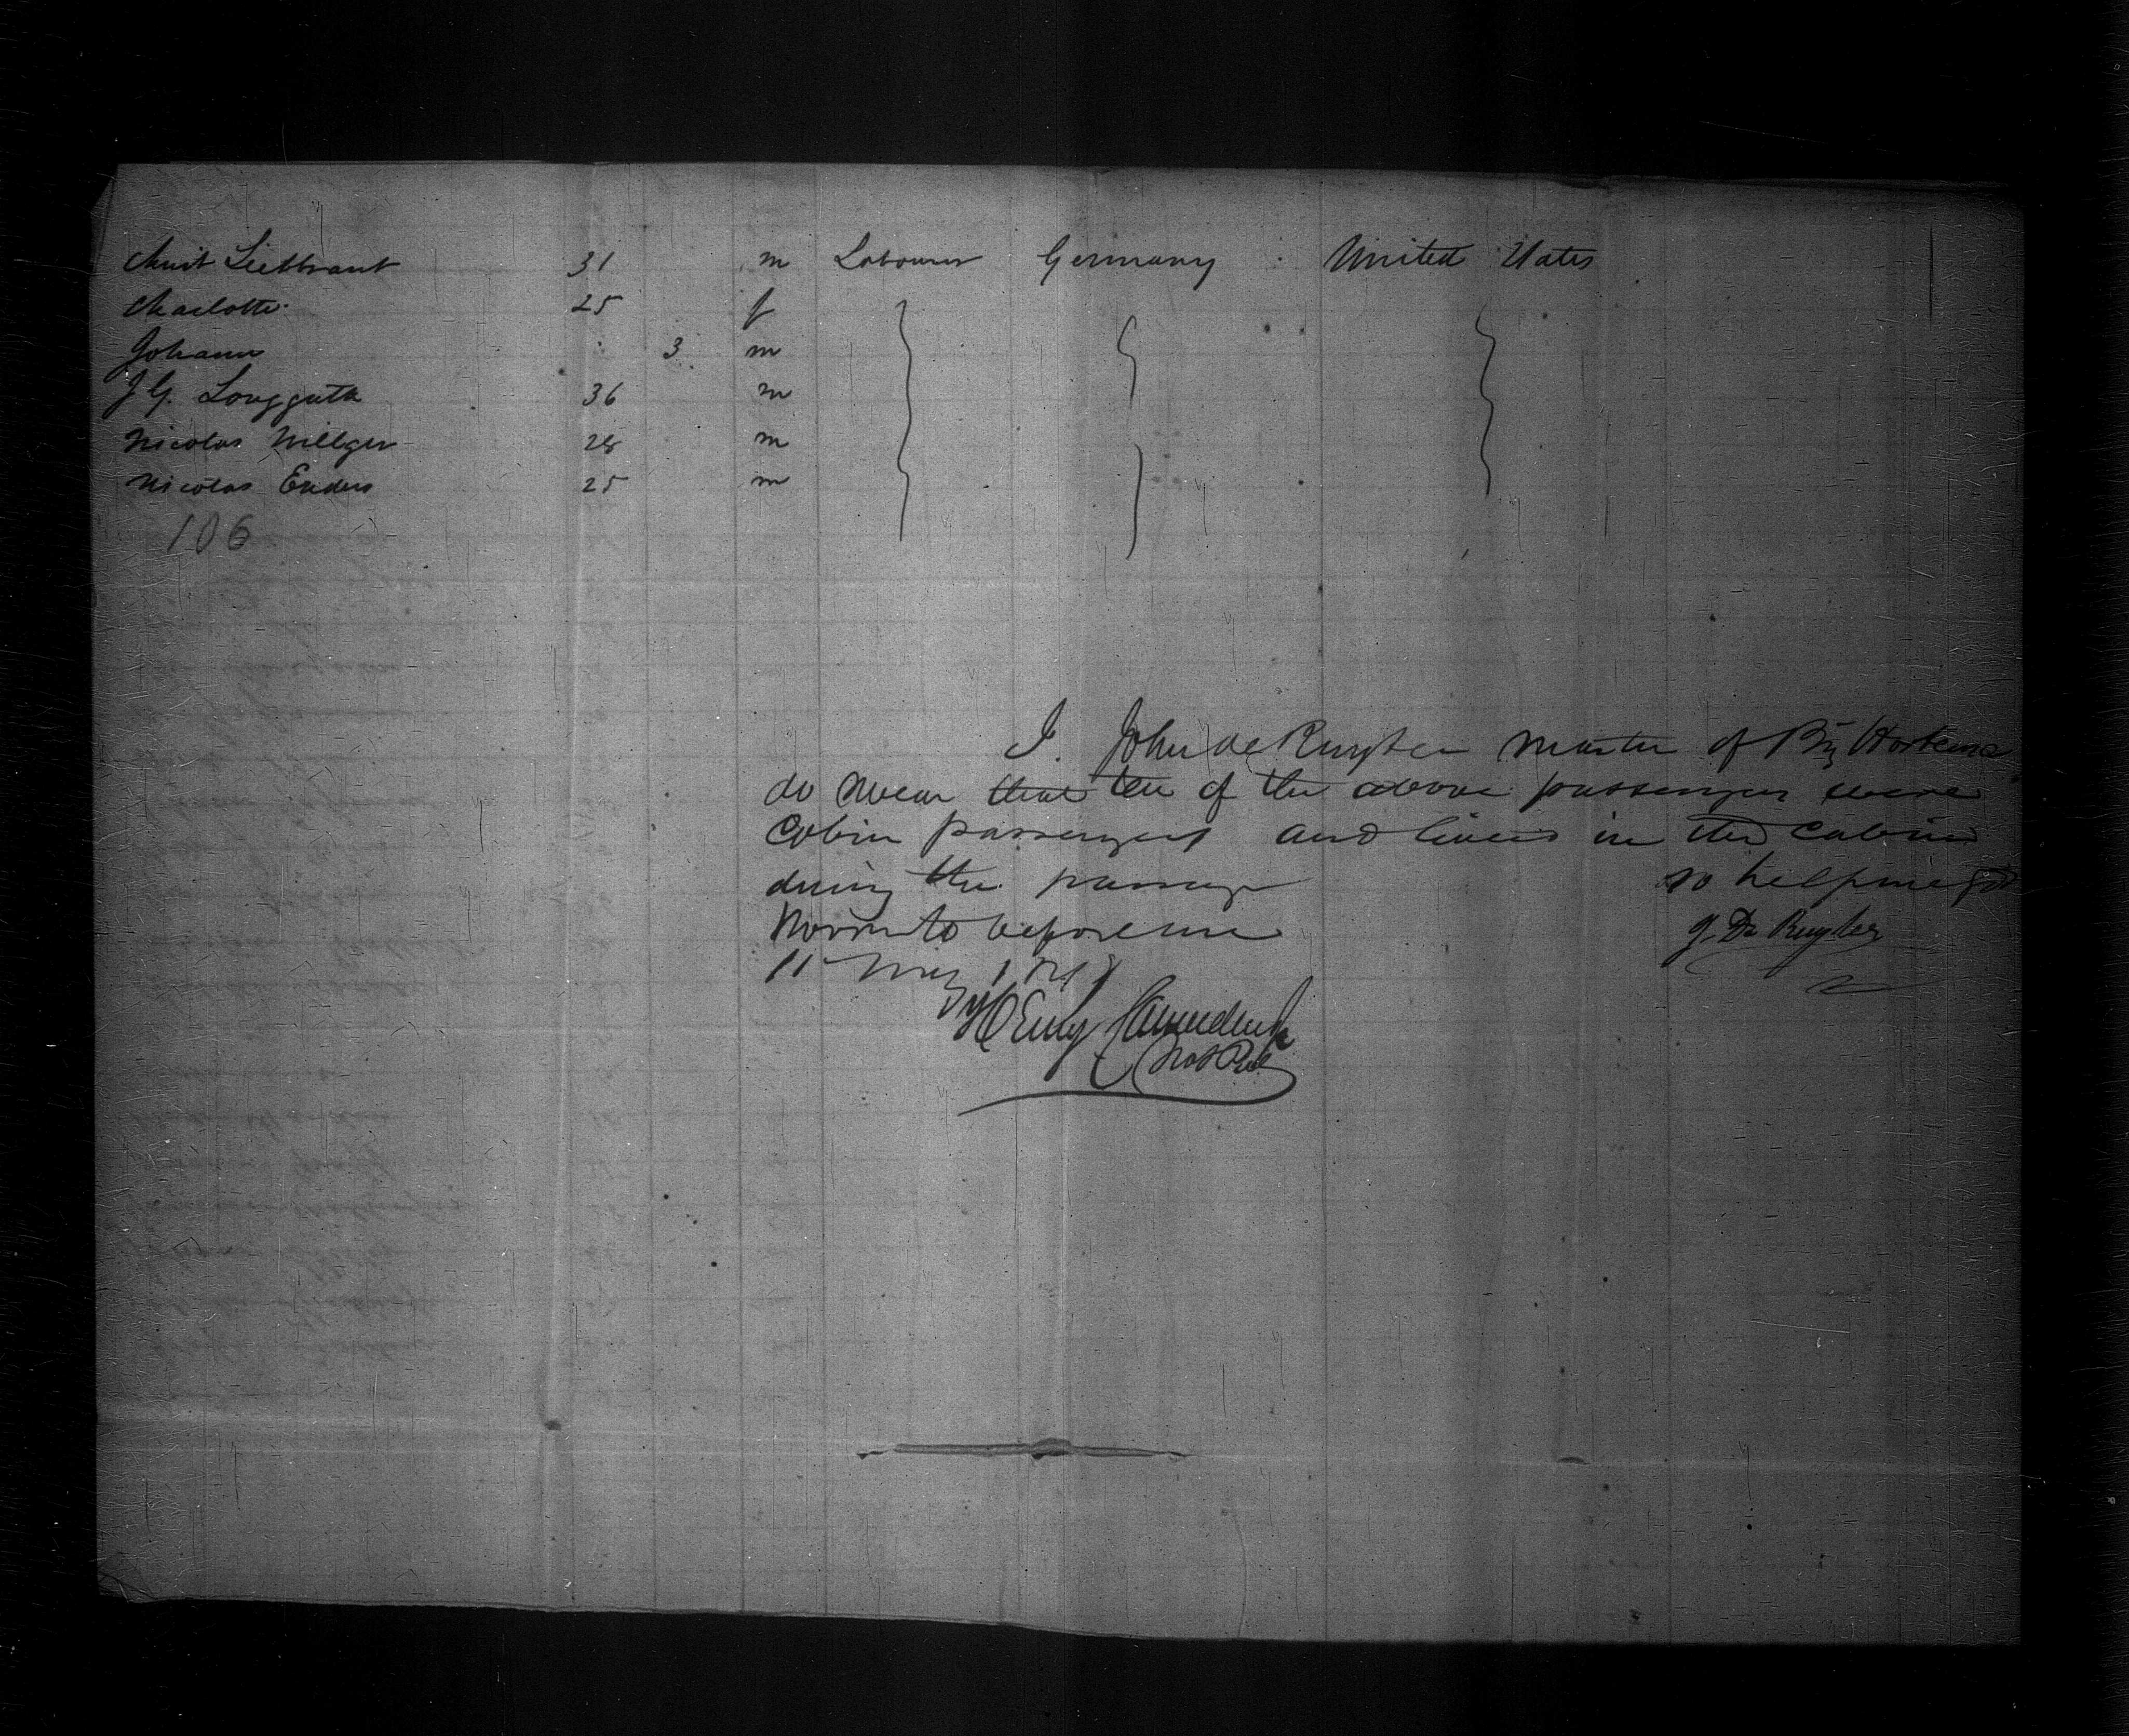 31 m Labourer Germany United States
Charlotte 25 f
Johann 3 m
J G. Longguth 36 m
Nicolas 28 m
Nicolas Enders 25 m
106
I. John de Ruyter Master of Brig
do swear that ten of the above passengers were
Cabin passengers and lived in the Cabin
during the passage so help me god
Sworn to before me J. De Ruyter
11 May
Henry
Not Pub